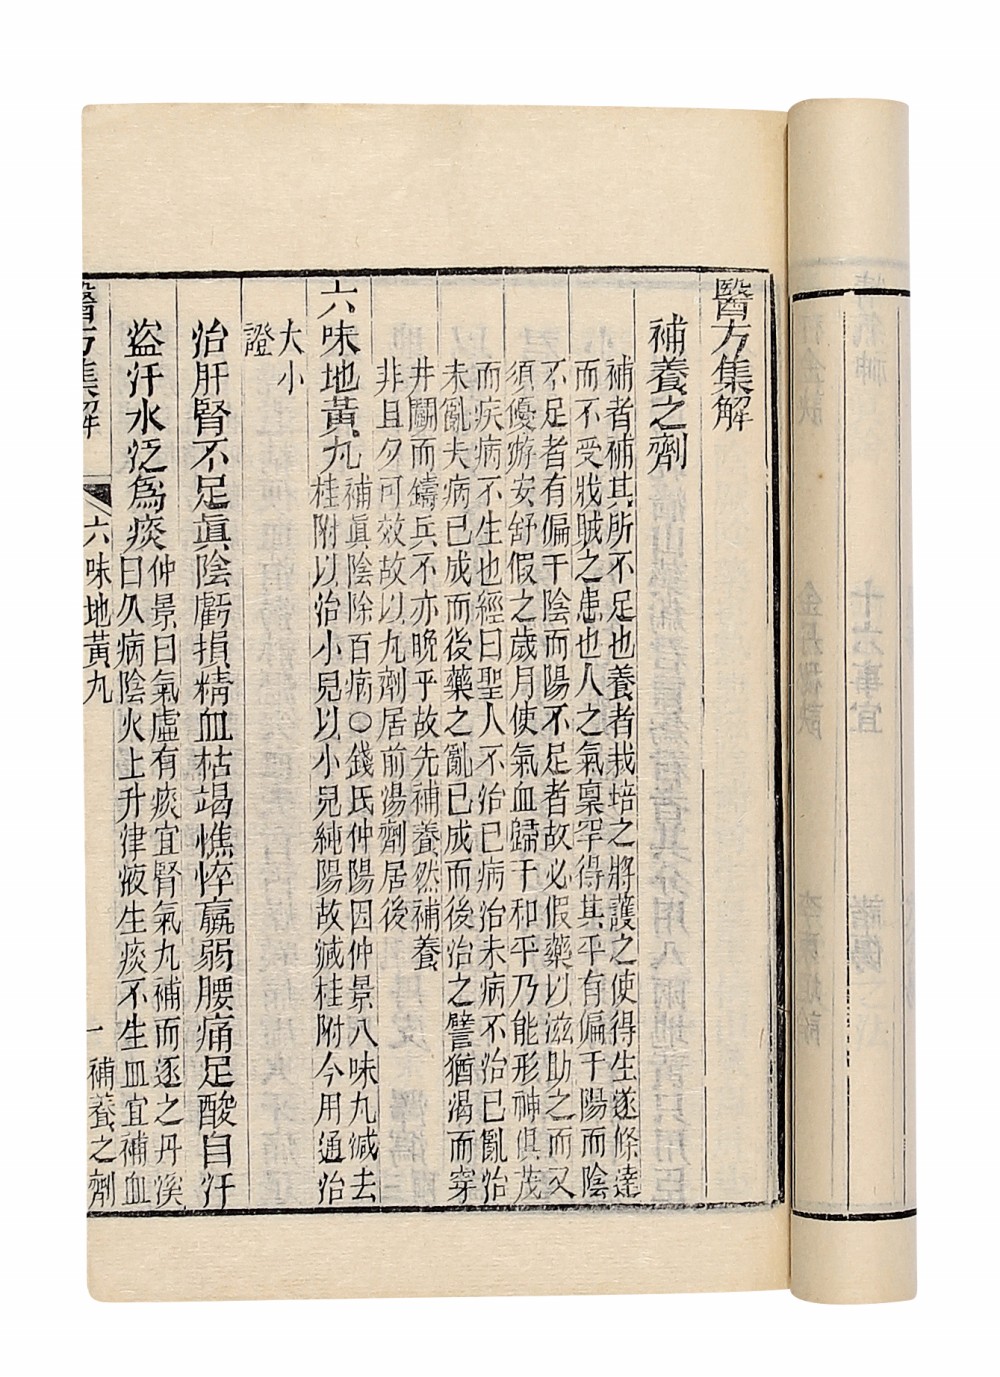 醫方集解
補養之劑
補者補其所不足也養者栽培之將護之使得生遂條達
而不受戕賊之患也人之氣稟罕得其平有偏于陽而陰
不足者有偏于陰而陽不足者故必假藥以滋助之而又
須優游安舒假之歲月使氣血歸于和平乃能形神俱茂
而疾病不生也經曰聖人不治已病治未病不治已亂治
未亂夫病已成而後藥之亂已成而後治之譬猶渴而穿
井鬭而鑄兵不亦晚乎故先補養然補養
非旦夕可效故以丸劑居前湯劑居後
六味地黃丸
補眞陰除百病〇錢氏仲陽因仲景八味丸減去
桂附以治小兒以小兒純陽故減桂附今用通治
大小
證
治肝腎不足眞陰虧損精血枯竭憔悴羸弱腰痛足酸自汗
盜汗水泛爲痰
仲景曰氣虛有痰宜腎氣丸補而逐之丹溪
曰久病陰火上升津液生痰不生血宜補血
醫方集解
六味地黃丸
一
補養之劑